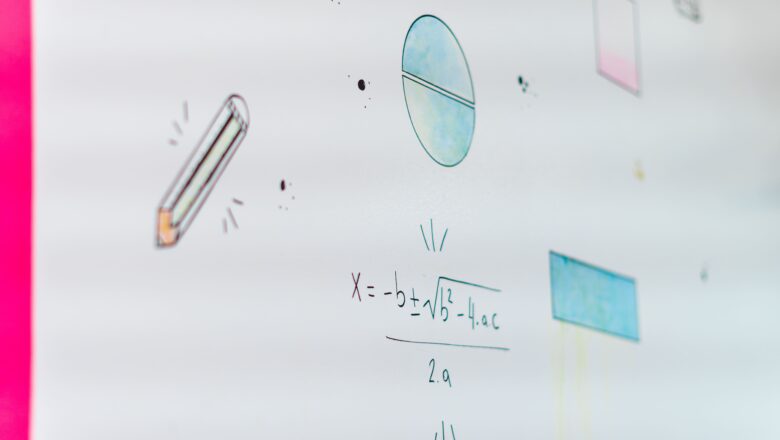 x = -b ± √b² - 4.ac
2.a